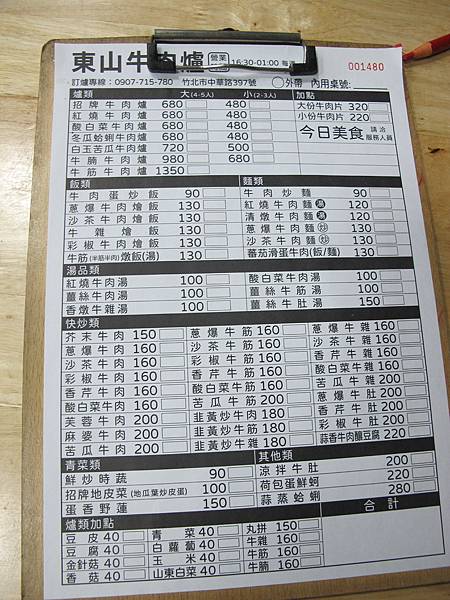 東山牛肉爐 營業 16:30-01:00 每
001480
訂爐專線：0907-715-780 竹北市中華路397號 外帶 內用桌號:
爐類 大(4-5人) 小(2-3人) 加點
招牌牛肉爐 680 480 大份牛肉片 320
紅燒牛肉爐 680 480 小份牛肉片 220
酸白菜牛肉爐 680 480 今日美食 請洽服務人員
冬瓜蛤蜊牛肉爐 680 480
白玉苦瓜牛肉爐 720 500
牛腩牛肉爐 980 680
牛筋牛肉爐 1350
飯類 麵類
牛肉蛋炒飯 90 牛肉炒麵 90
蔥爆牛肉燴飯 130 紅燒牛肉麵 湯 120
沙茶牛肉燴飯 130 清燉牛肉麵 湯 120
牛雜燴飯 130 蔥爆牛肉麵 炒 130
彩椒牛肉燴飯 130 沙茶牛肉麵 炒 130
牛筋(半筋半肉)燉飯(湯) 130 蕃茄滑蛋牛肉(飯/麵) 130
湯品類
紅燒牛肉湯 100 酸白菜牛肉湯 100
薑絲牛肉湯 100 薑絲牛筋湯 100
香燉牛雜湯 100 薑絲牛肚湯 150
快炒類
芥末牛肉 150 蔥爆牛筋 160 蔥爆牛雜 160
蔥爆牛肉 160 沙茶牛筋 160 沙茶牛雜 160
沙茶牛肉 160 彩椒牛筋 160 香芹牛雜 160
彩椒牛肉 160 香芹牛筋 160 酸白菜牛雜 160
香芹牛肉 160 酸白菜牛筋 160 苦瓜牛雜 200
酸白菜牛肉 160 苦瓜牛筋 200 蔥爆牛肚 200
芙蓉牛肉 200 韭黃炒牛肉 180 香芹牛肚 200
麻婆牛肉 200 韭黃炒牛筋 180 彩椒牛肚 200
苦瓜牛肉 200 韭黃炒牛雜 180 蒜香牛肉釀豆腐 220
青菜類 其他類
鮮炒時蔬 90 涼拌牛肚 200
招牌地皮菜(地瓜葉炒皮蛋) 100 荷包蛋鮮蚵 220
蛋香野蓮 150 蒜蒸蛤蜊 280
爐類加點 合計
豆皮 40 青菜 40 丸拼 150
豆腐 40 白蘿蔔 40 牛雜 160
金針菇 40 玉米 40 牛筋 160
香菇 40 山東白菜 40 牛腩 160